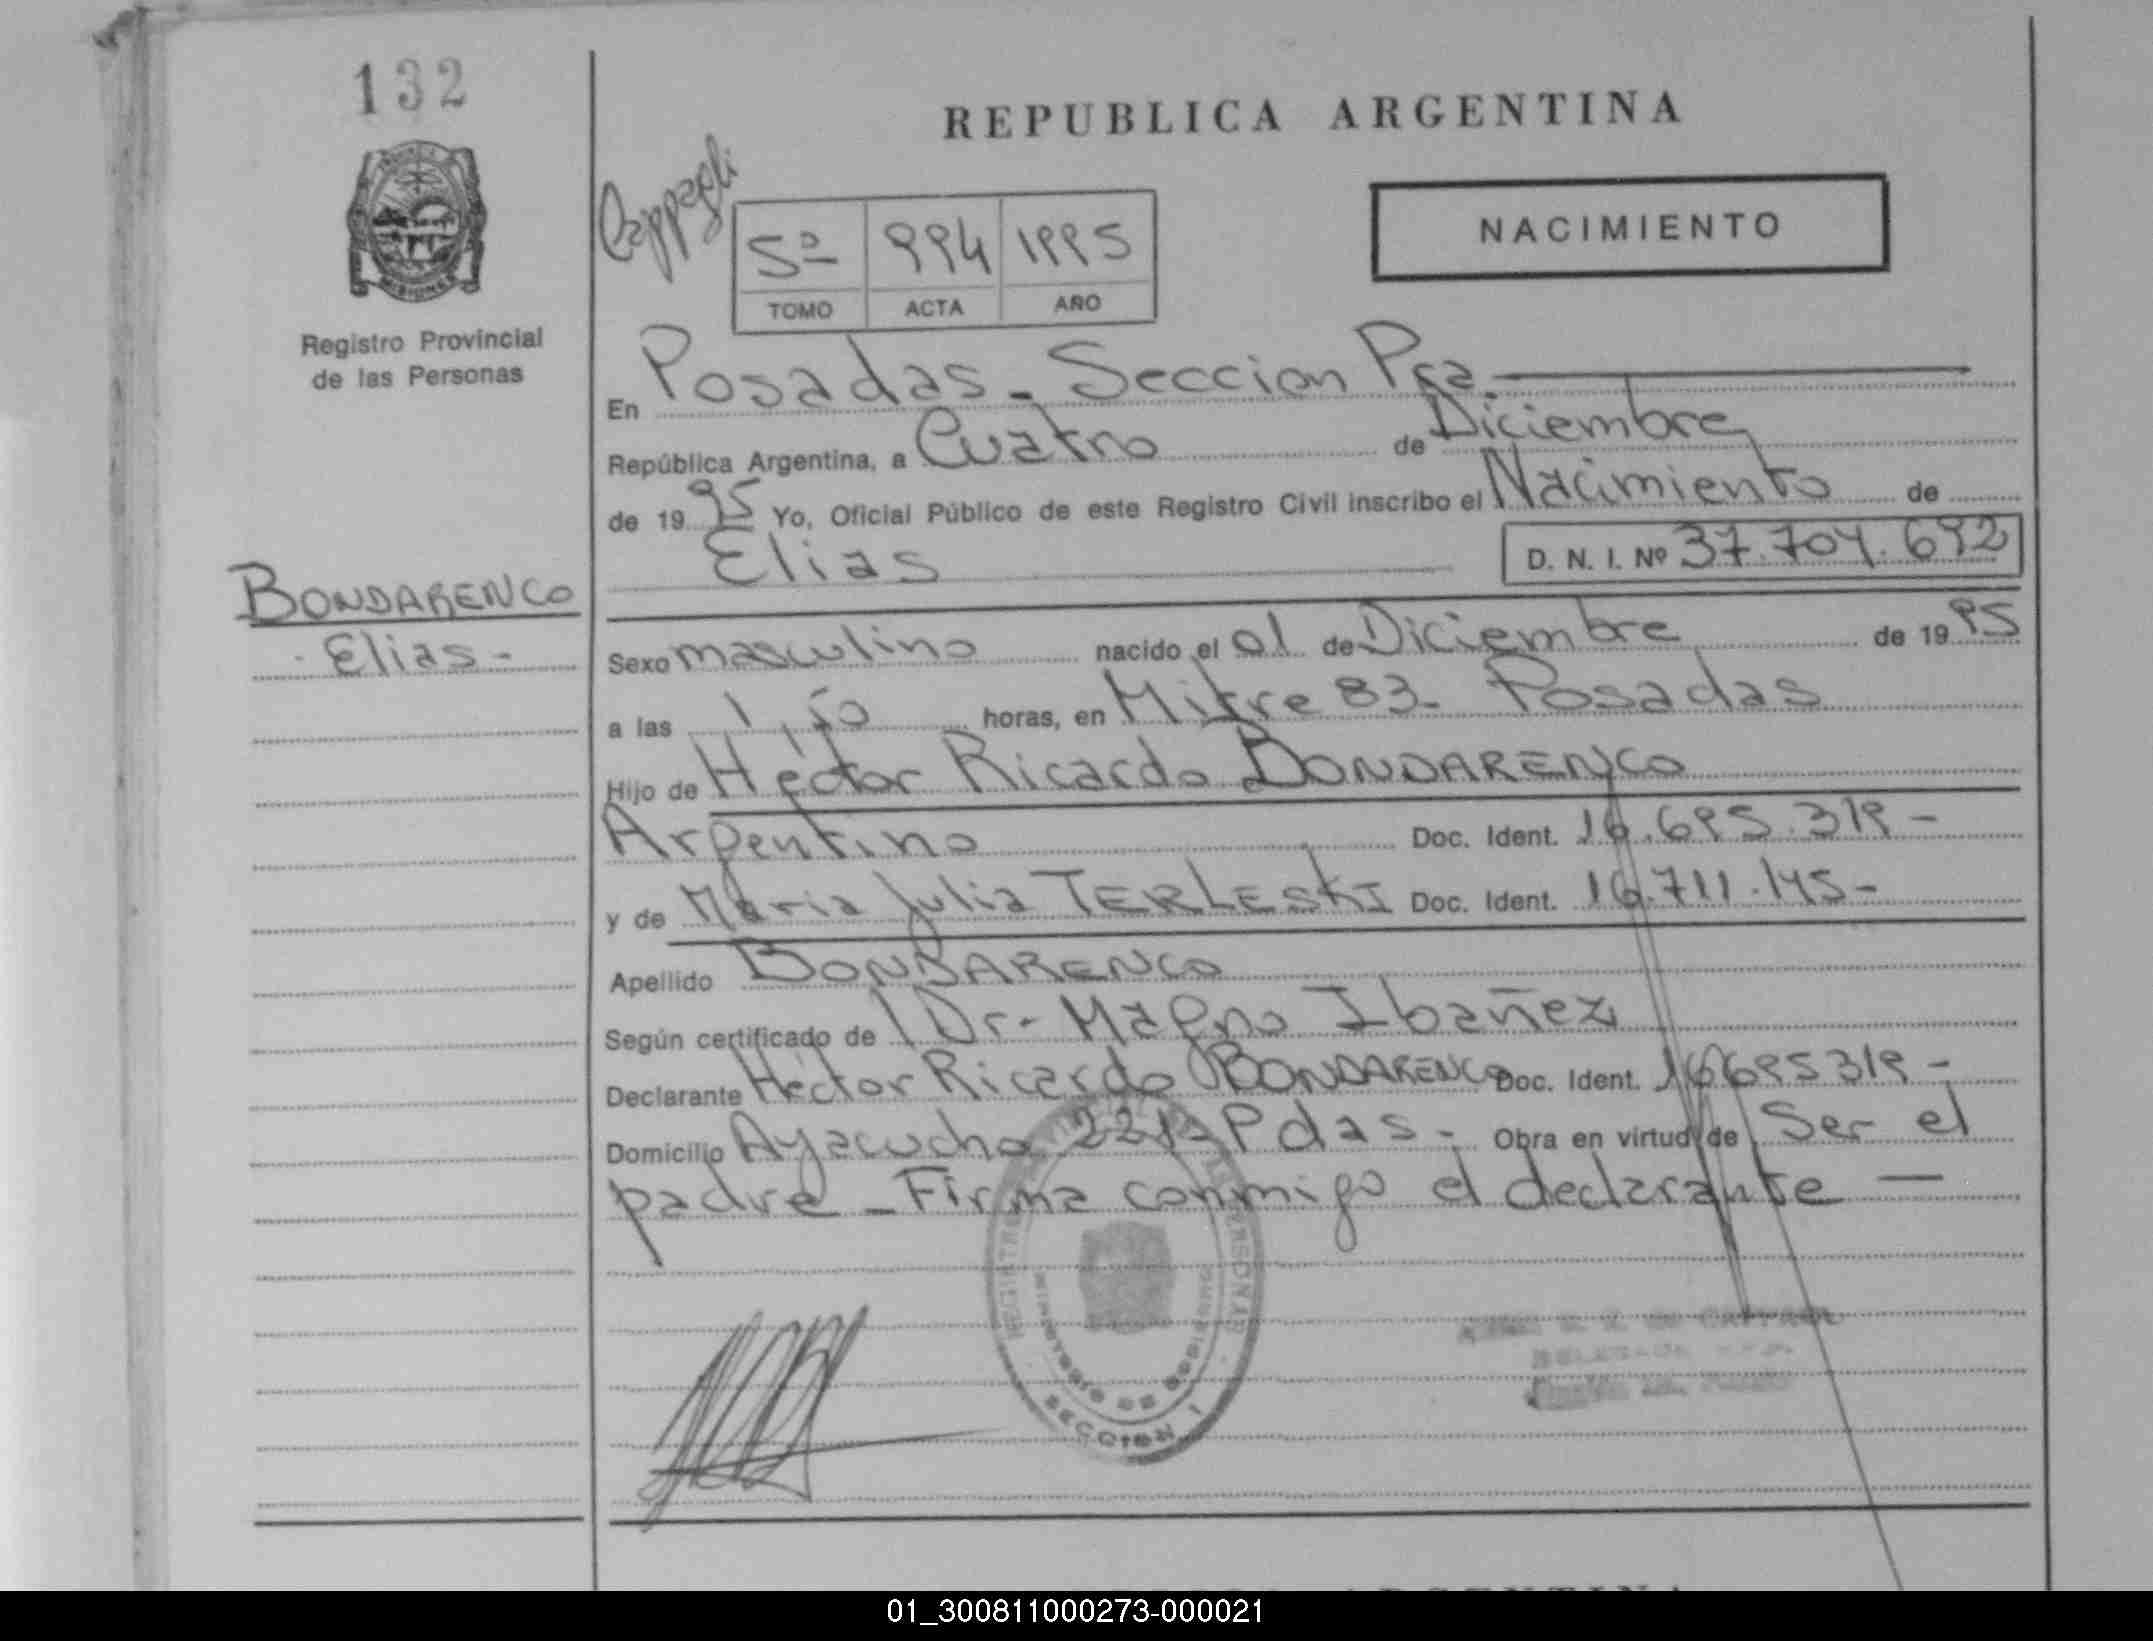 132
REPUBLICA ARGENTINA
Cappagli
NACIMIENTO
5º 994 1995
TOMO ACTA AÑO
Registro Provincial
de las Personas
En Posadas - Seccion Pra
República Argentina, a Cuatro de Diciembre
de 19 95 Yo, Oficial Público de este Registro Civil inscribo el Nacimiento de
Elias D. N. I. Nº 37.704.692
BONDARENCO
- Elias -
Sexo masculino nacido el 01 de Diciembre de 19 95
a las horas, en Mitre 83 - Posadas
Hijo de Héctor Ricardo BONDARENCO
Argentino Doc. Ident. 16.695.319 -
y de Maria Julia TERLESKI Doc. Ident. 16.711.145 -
Apellido BONDARENCO
Según certificado de Dr - Magno Ibañez
Declarante Héctor Ricardo BONDARENCO Doc. Ident. 16695319 -
Domicilio Ayacucho Pdas - Obra en virtud de Ser el
padre - Firma conmigo el declarante —
SECCION 1
01_300811000273-000021